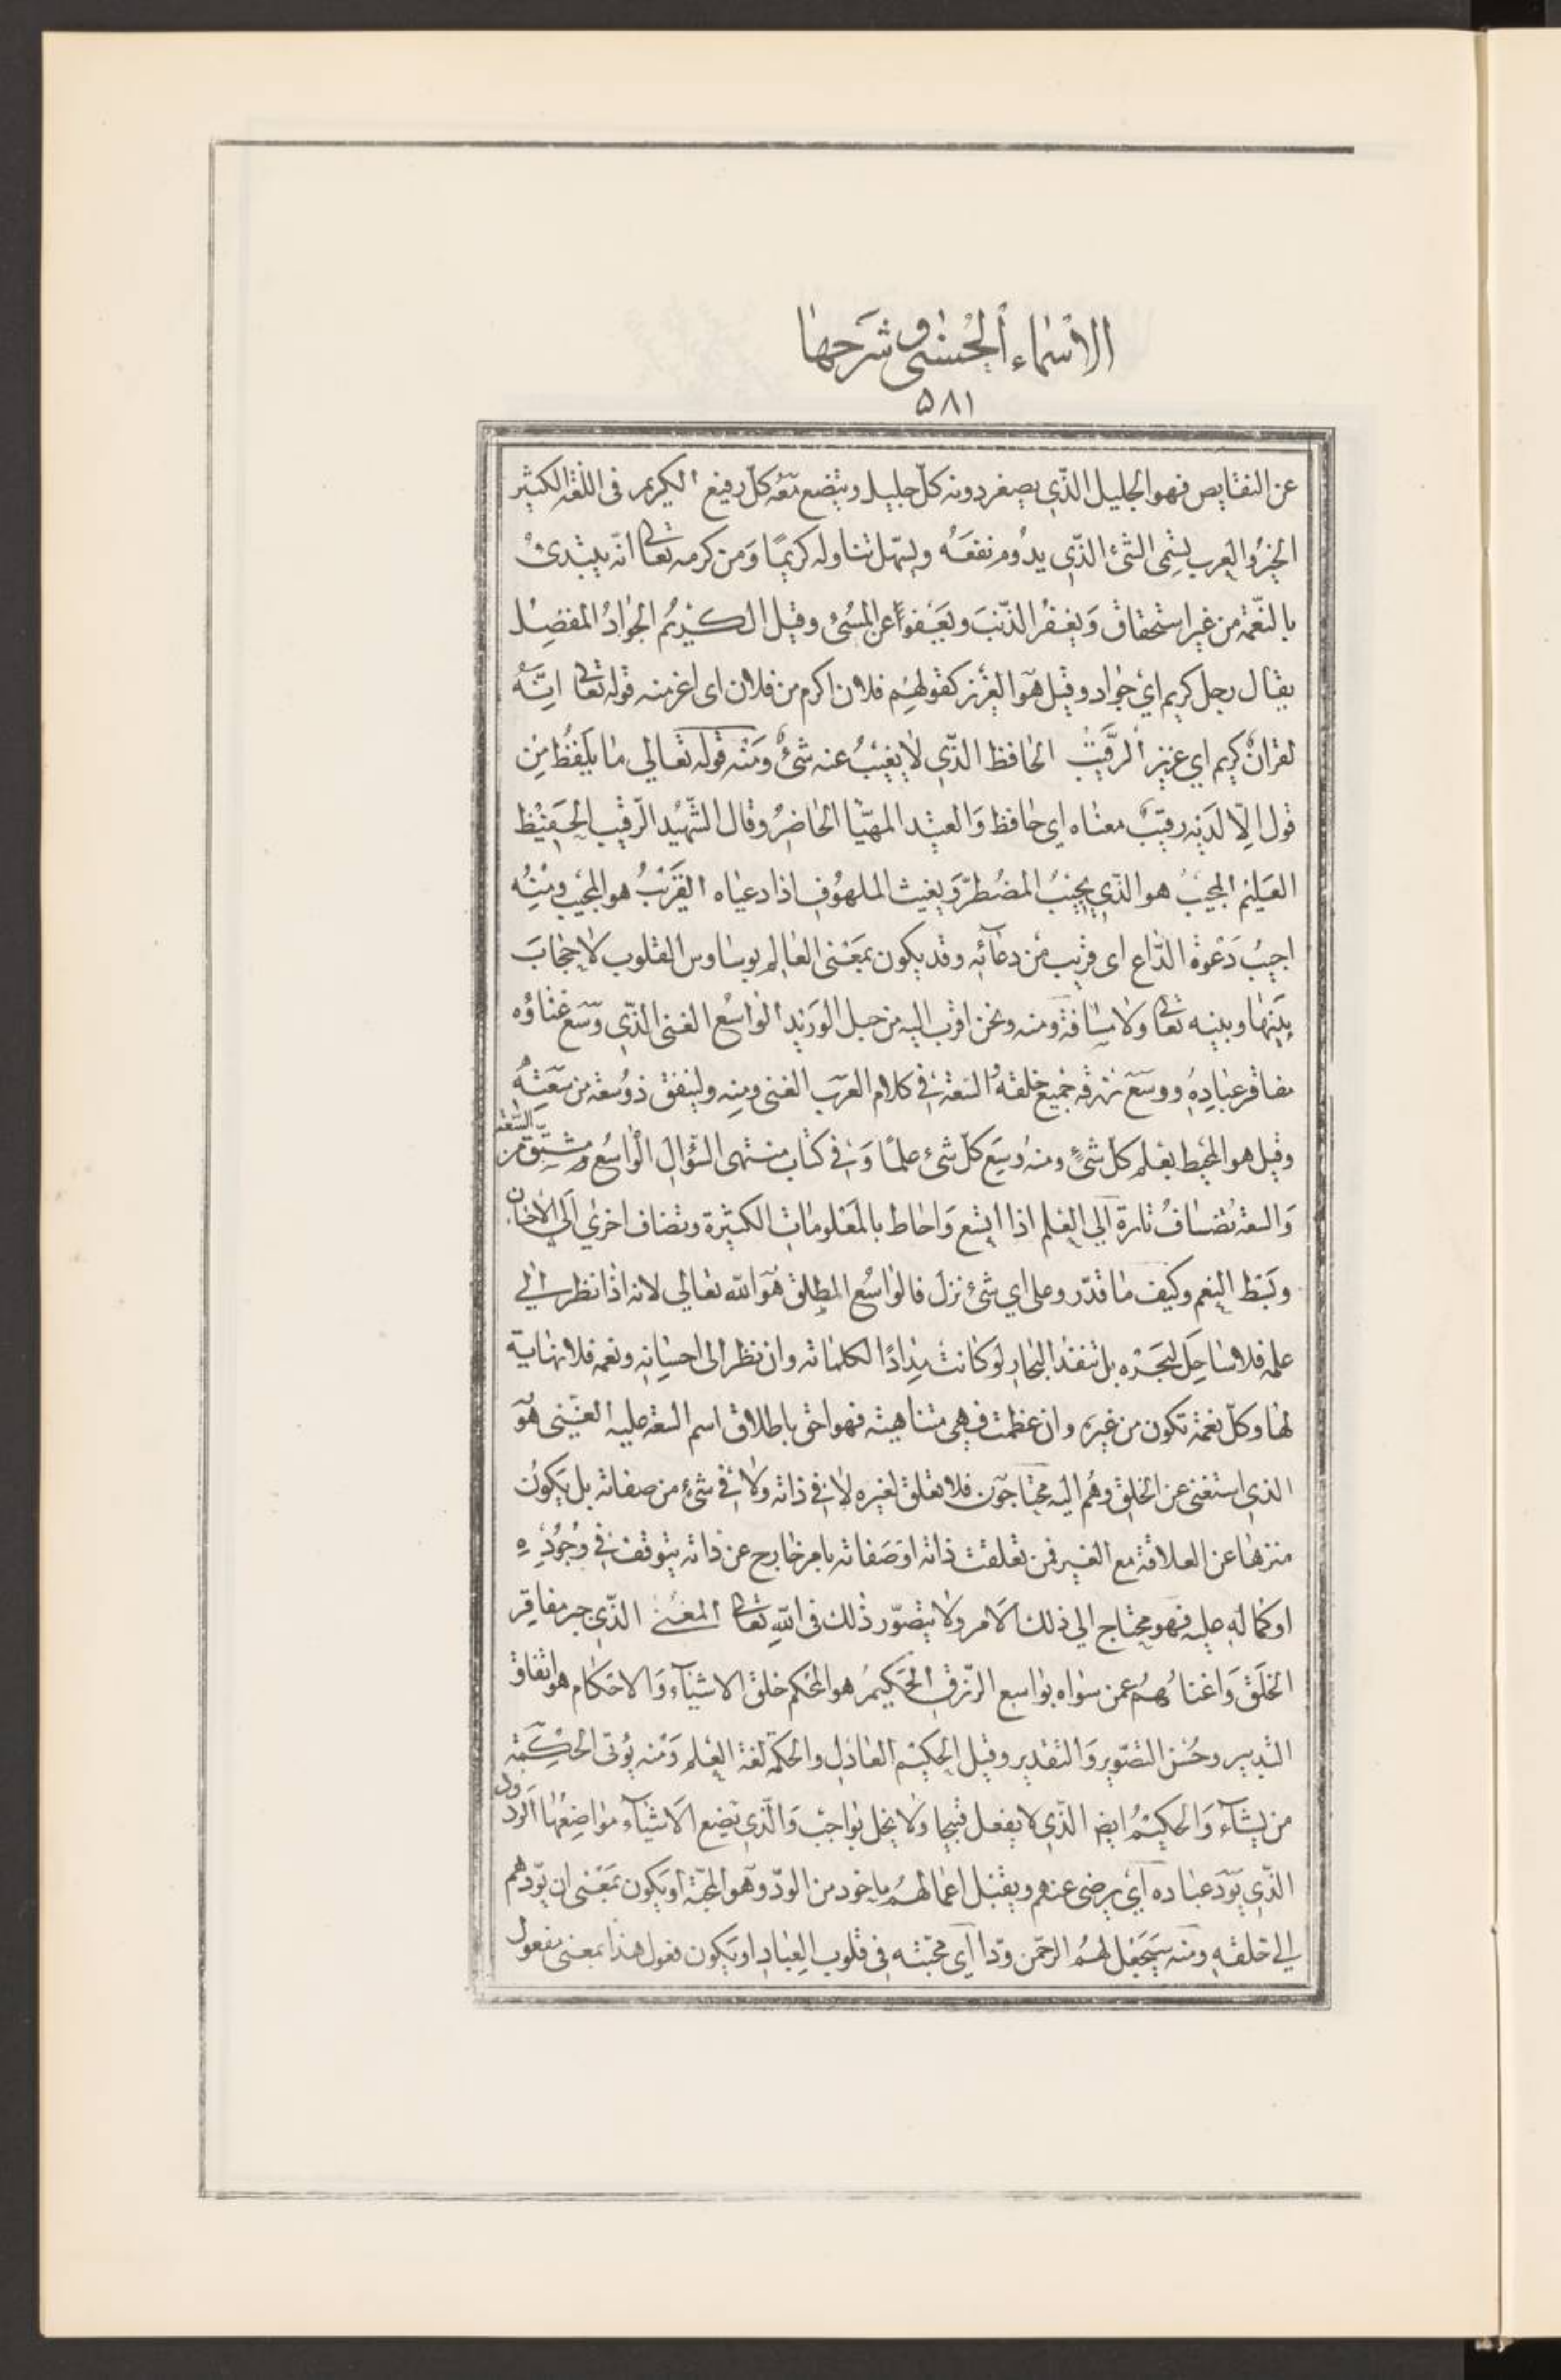 الأسماء الحسنى وشرحها
٥٨١
عن النقايص فهو الجليل الذّي يصغر دونه كلّ جليل ويتّضع معه كلّ رفيع الكريم فى اللّغة الكثير
الخير والعرب تسمى الشئ الذّي يدوم نفعه ويسهل تناوله كريمًا ومن كرمه تعالى انّه يبتدئ
بالنّعمة من غير استحقاق ويغفر الذّنب ويعفو عن المسئ وقيل الكريم الجواد المفضل
يقال رجل كريم اي جواد وقيل هو العزيز كقولهم فلان اكرم من فلان اى اعز منه قوله تعالى انّه
لقران كريم اي عزيز الرّقيب الحافظ الذّي لا يغيب عنه شئ ومنه قوله تعالي ما يلفظ من
قول الّا لديه رقيب معناه اي حافظ والعتيد المهيّا الحاضر وقال الشّهيد الرّقيب الحفيظ
العليم المجيب هو الذّي يجيب المضطرّ ويغيث الملهوف اذا دعياه القريب هو المجيب ومنه
اجيب دعوة الدّاع اى قريب من دعائه وقد يكون بمعنى العالم بوساوس القلوب لا حجاب
بينها وبينه تعالى ولا مسافة ومنه ونحن اقرب اليه من حبل الوريد الواسع الغنى الذّي وسع غناؤه
مفاقر عباده ووسع رزقه جميع خلقه والسّعة في كلام العرب الغنى ومنه ولينفق ذو سعة من سعته
وقيل هو المحيط بعلم كلّ شئ ومنه وسع كلّ شئ علمًا وفي كتاب منتهى السّؤال الواسع مشتق من السّعة
والسعة تضاف تارة الي العلم اذا اتسع واحاط بالمعلومات الكثيرة وتضاف اخري الي الاحسان
وبسط النعم وكيف ما قدّر وعلى اي شئ نزل فالواسع المطلق هو الله تعالي لانه اذا نظر الي
علمه فلا ساحل لبحره بل تنفد البحار لو كانت مدادًا لكلماته وان نظر الى احسانه ونعمه فلا نهاية
لها وكلّ نعمة تكون من غيره وان عظمت فهى متناهية فهو احق باطلاق اسم السعة عليه الغنى هو
الذي استغنى عن الخلق وهم اليه محتاجون فلا تعلق لغيره لا في ذاته ولا في شئ من صفاته بل يكون
منزها عن العلاقة مع الغير فمن تعلقت ذاته او صفاته بامر خارج عن ذاته يتوقف في وجوده
او كماله عليه فهو محتاج الي ذلك الامر ولا يتصوّر ذلك فى الله تعالى المغنى الذّي جبر مفاقر
الخلق واغناهم عمن سواه بواسع الرّزق الحكيم هو المحكم خلق الاشياء والاحكام هو اتقان
التدبير وحسن التصوير والتقدير وقيل الحكيم العادل والحكمة لغة العلم ومنه يؤتى الحكمة
من يشاء والحكيم ايض الذّي لا يفعل قبيحا ولا يخل بواجب والّذي يضع الاشياء مواضعها الودود
الذّي يودّ عباده اي يرضى عنهم ويقبل اعمالهم ماخوذ من الودّ وهو المحبّة او يكون بمعنى ان يودّهم
الي خلقه ومنه سيجعل لهم الرحمن ودّا اي محبّته في قلوب العباد او يكون فعول هذا بمعنى مفعول